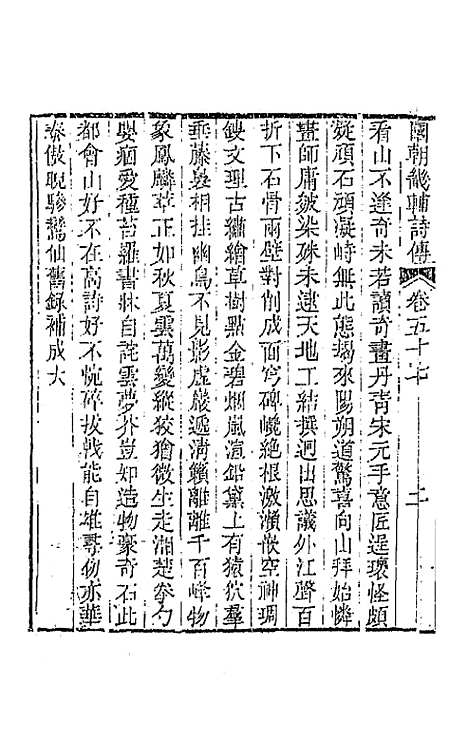 國朝畿輔詩傳 卷五十七 二
看山不逢奇未若讀奇畫丹青宋元手意匠逞瓌怪頗
疑頑石頑凝峙無此態朅來陽朔道驚喜向山拜始憐
畫師庸皴染殊未逮天地工結撰迥出思議外江磨百
折下石骨兩壁對削成面穹碑巉絕根激瀨嵌空神琱
鎪文理古繡繪草樹點金碧烟嵐渲鉛黛上有猿狖羣
垂藤裊相挂幽鳥不見影虛巖遞清籟離離千百峰物
象鳳麟草正如秋夏雲萬變縱狡獪微生走湘楚拳勺
嬰痼愛種苔羅書牀自詫雲夢芥豈如造物豪奇石此
都會山好不在高詩好不恍碎拔戟能自雄尋仞亦華
泰傲睨驂鸞仙舊錄補成大